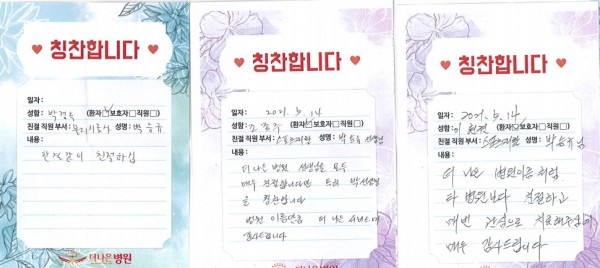 칭찬합니다
일자 :
성함 : 박경득 (환자☑보호자□직원□)
친절 직원 부서 : 물리치료사 성명 : 박승규
내용 :
친절하심
더나은병원
칭찬합니다
일자 : 2021. 5. 14
성함 : (환자☑보호자□직원□)
친절 직원 부서 : 스포츠재활 성명 : 박승규 선생님
내용 :
더 나은 병원 선생님들 모두
매우 친절합니다만 특히 박선생님
을 칭찬합니다
병원 이름만큼 더 나은 서비스에
감사드립니다
칭찬합니다
일자 : 2021. 5. 14
성함 : 이 (환자☑보호자□직원□)
친절 직원 부서 : 스포츠재활 성명 : 박승규님
내용 :
더 나은 병원이름처럼
타 병원보다 친절하고
매번 관심으로 치료해주심에
매우 감사드립니다